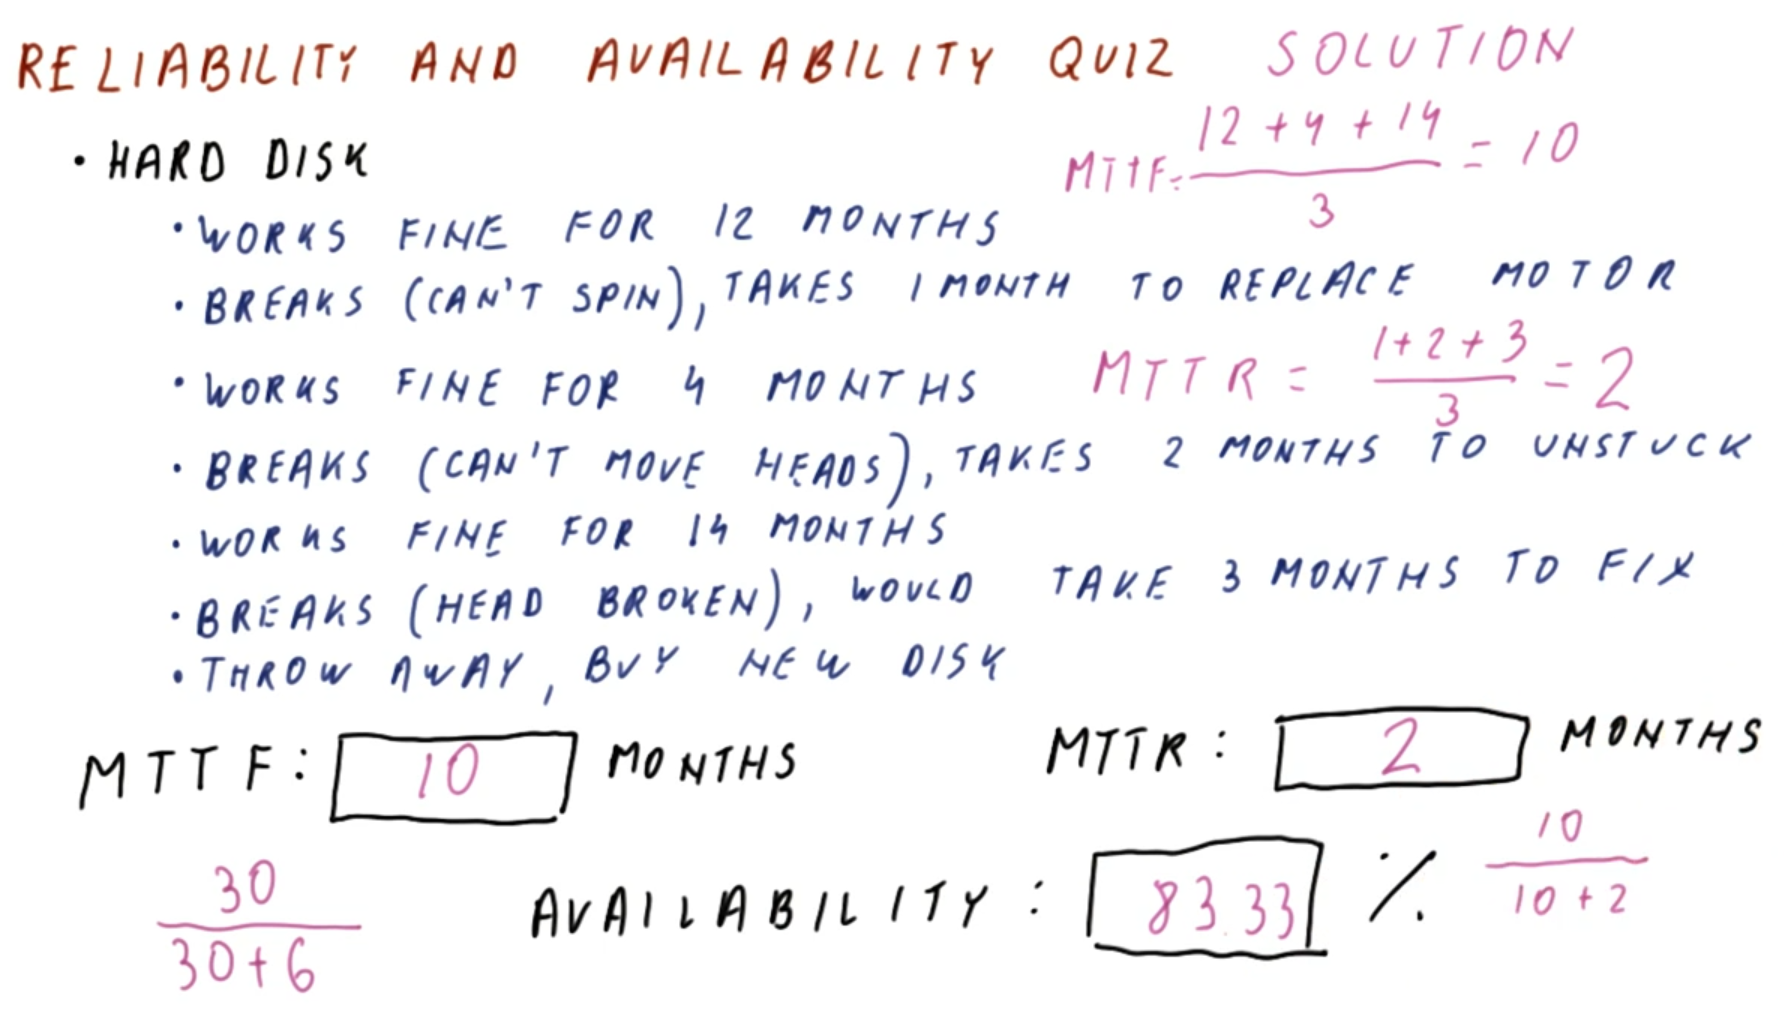 RELIABILITY AND AVAILABILITY QUIZ SOLUTION
• HARD DISK
MTTF = (12 + 4 + 14) / 3 = 10
• WORKS FINE FOR 12 MONTHS
• BREAKS (CAN'T SPIN), TAKES 1 MONTH TO REPLACE MOTOR
• WORKS FINE FOR 4 MONTHS
MTTR = (1 + 2 + 3) / 3 = 2
• BREAKS (CAN'T MOVE HEADS), TAKES 2 MONTHS TO UNSTUCK
• WORKS FINE FOR 14 MONTHS
• BREAKS (HEAD BROKEN), WOULD TAKE 3 MONTHS TO FIX
• THROW AWAY, BUY NEW DISK
MTTF: 10 MONTHS
MTTR: 2 MONTHS
30 / (30 + 6)
AVAILABILITY: 83.33 %
10 / (10 + 2)